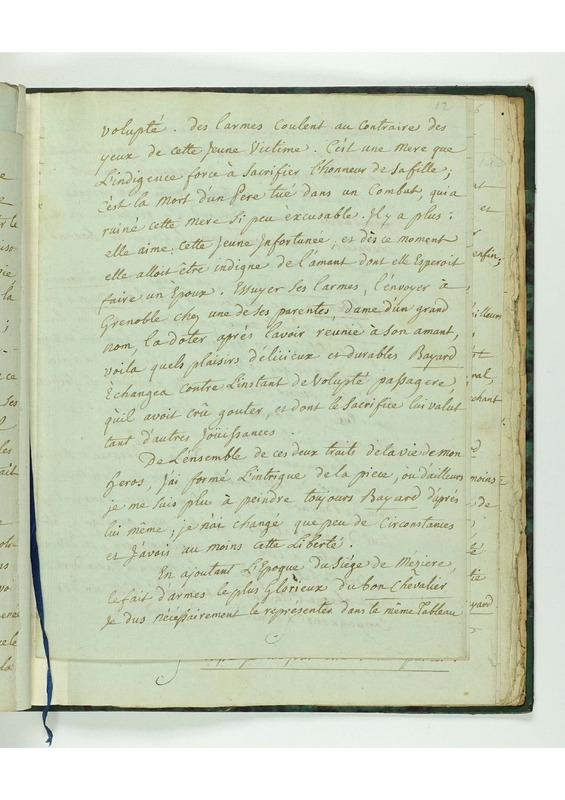 12
volupté. des larmes coulent au contraire des
yeux de cette jeune Victime. C'est une mere que
L'indigence force à sacrifier l'honneur de sa fille;
c'est la mort d'un Pere tué dans un Combat, qui a
ruiné cette mere si peu excusable. Il y a plus:
elle aime cette jeune Infortunée, et dès ce moment
elle alloit être indigne de l'amant dont elle Esperoit
faire un Epoux. Essuyer ses larmes, l'envoyer à
Grenoble chez une de ses parentes, dame d'un grand
nom, la doter après l'avoir reunie à son amant,
voila quels plaisirs délicieux et durables Bayard
Echangea contre L'instant de Volupté passagere,
qu'il avoit crû gouter, et dont le Sacrifice lui valut
tant d'autres Joüissances.
De L'ensemble de ces deux traits de la vie de mon
Heros, J'ai formé L'intrigue de la piece, ou d'ailleurs
je me suis plu à peindre toujours Bayard d'après
lui même; je n'ai changé que peu de Circonstances
et J'avois au moins cette Liberté.
En ajoutant L'Epoque du Siége de Méziere,
le fait d'armes le plus Glorieux du bon Chevalier
Je dus nécessairement le représenter dans le même Tableau